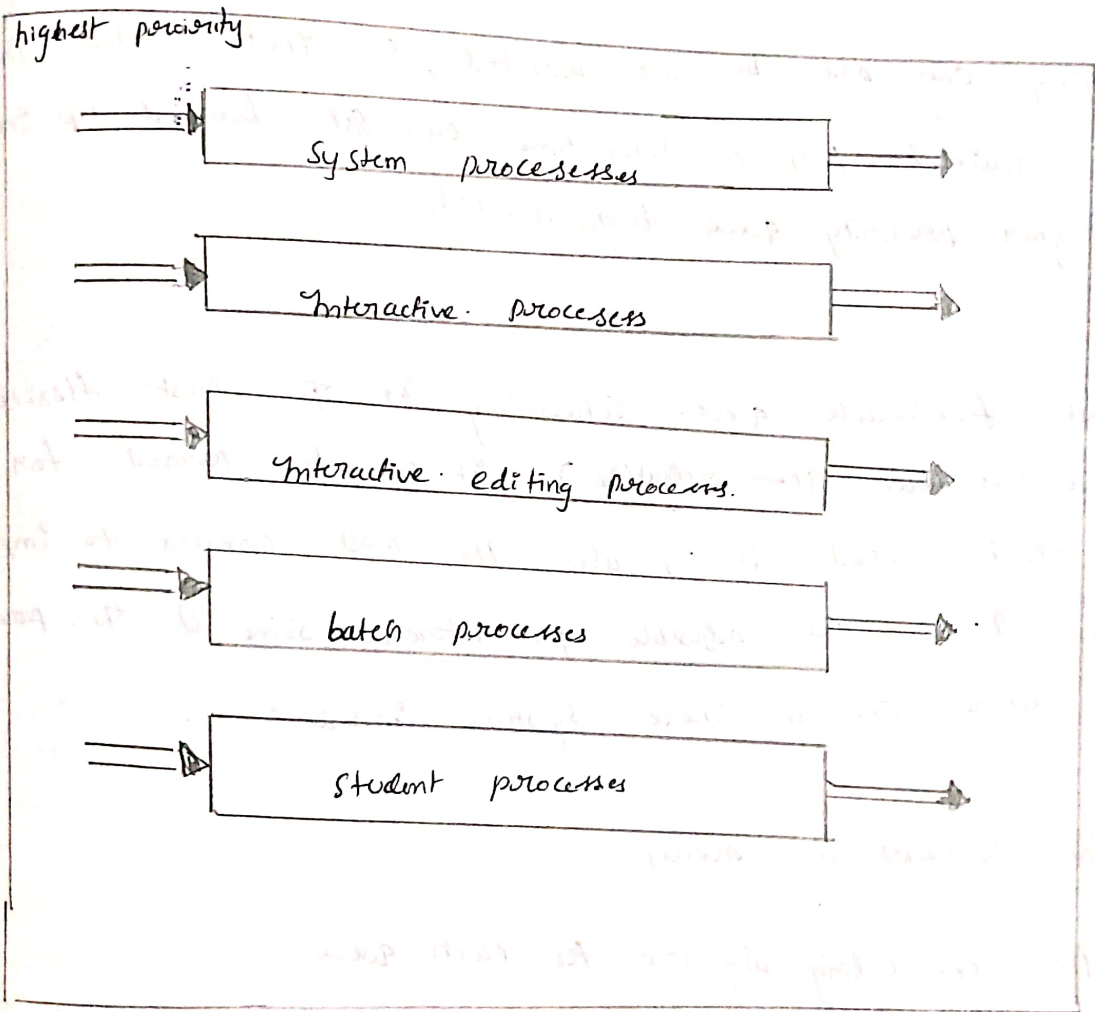 highest perciority
System procesesses
Interactive. processess
Interactive. editing process.
batch processes
student processes